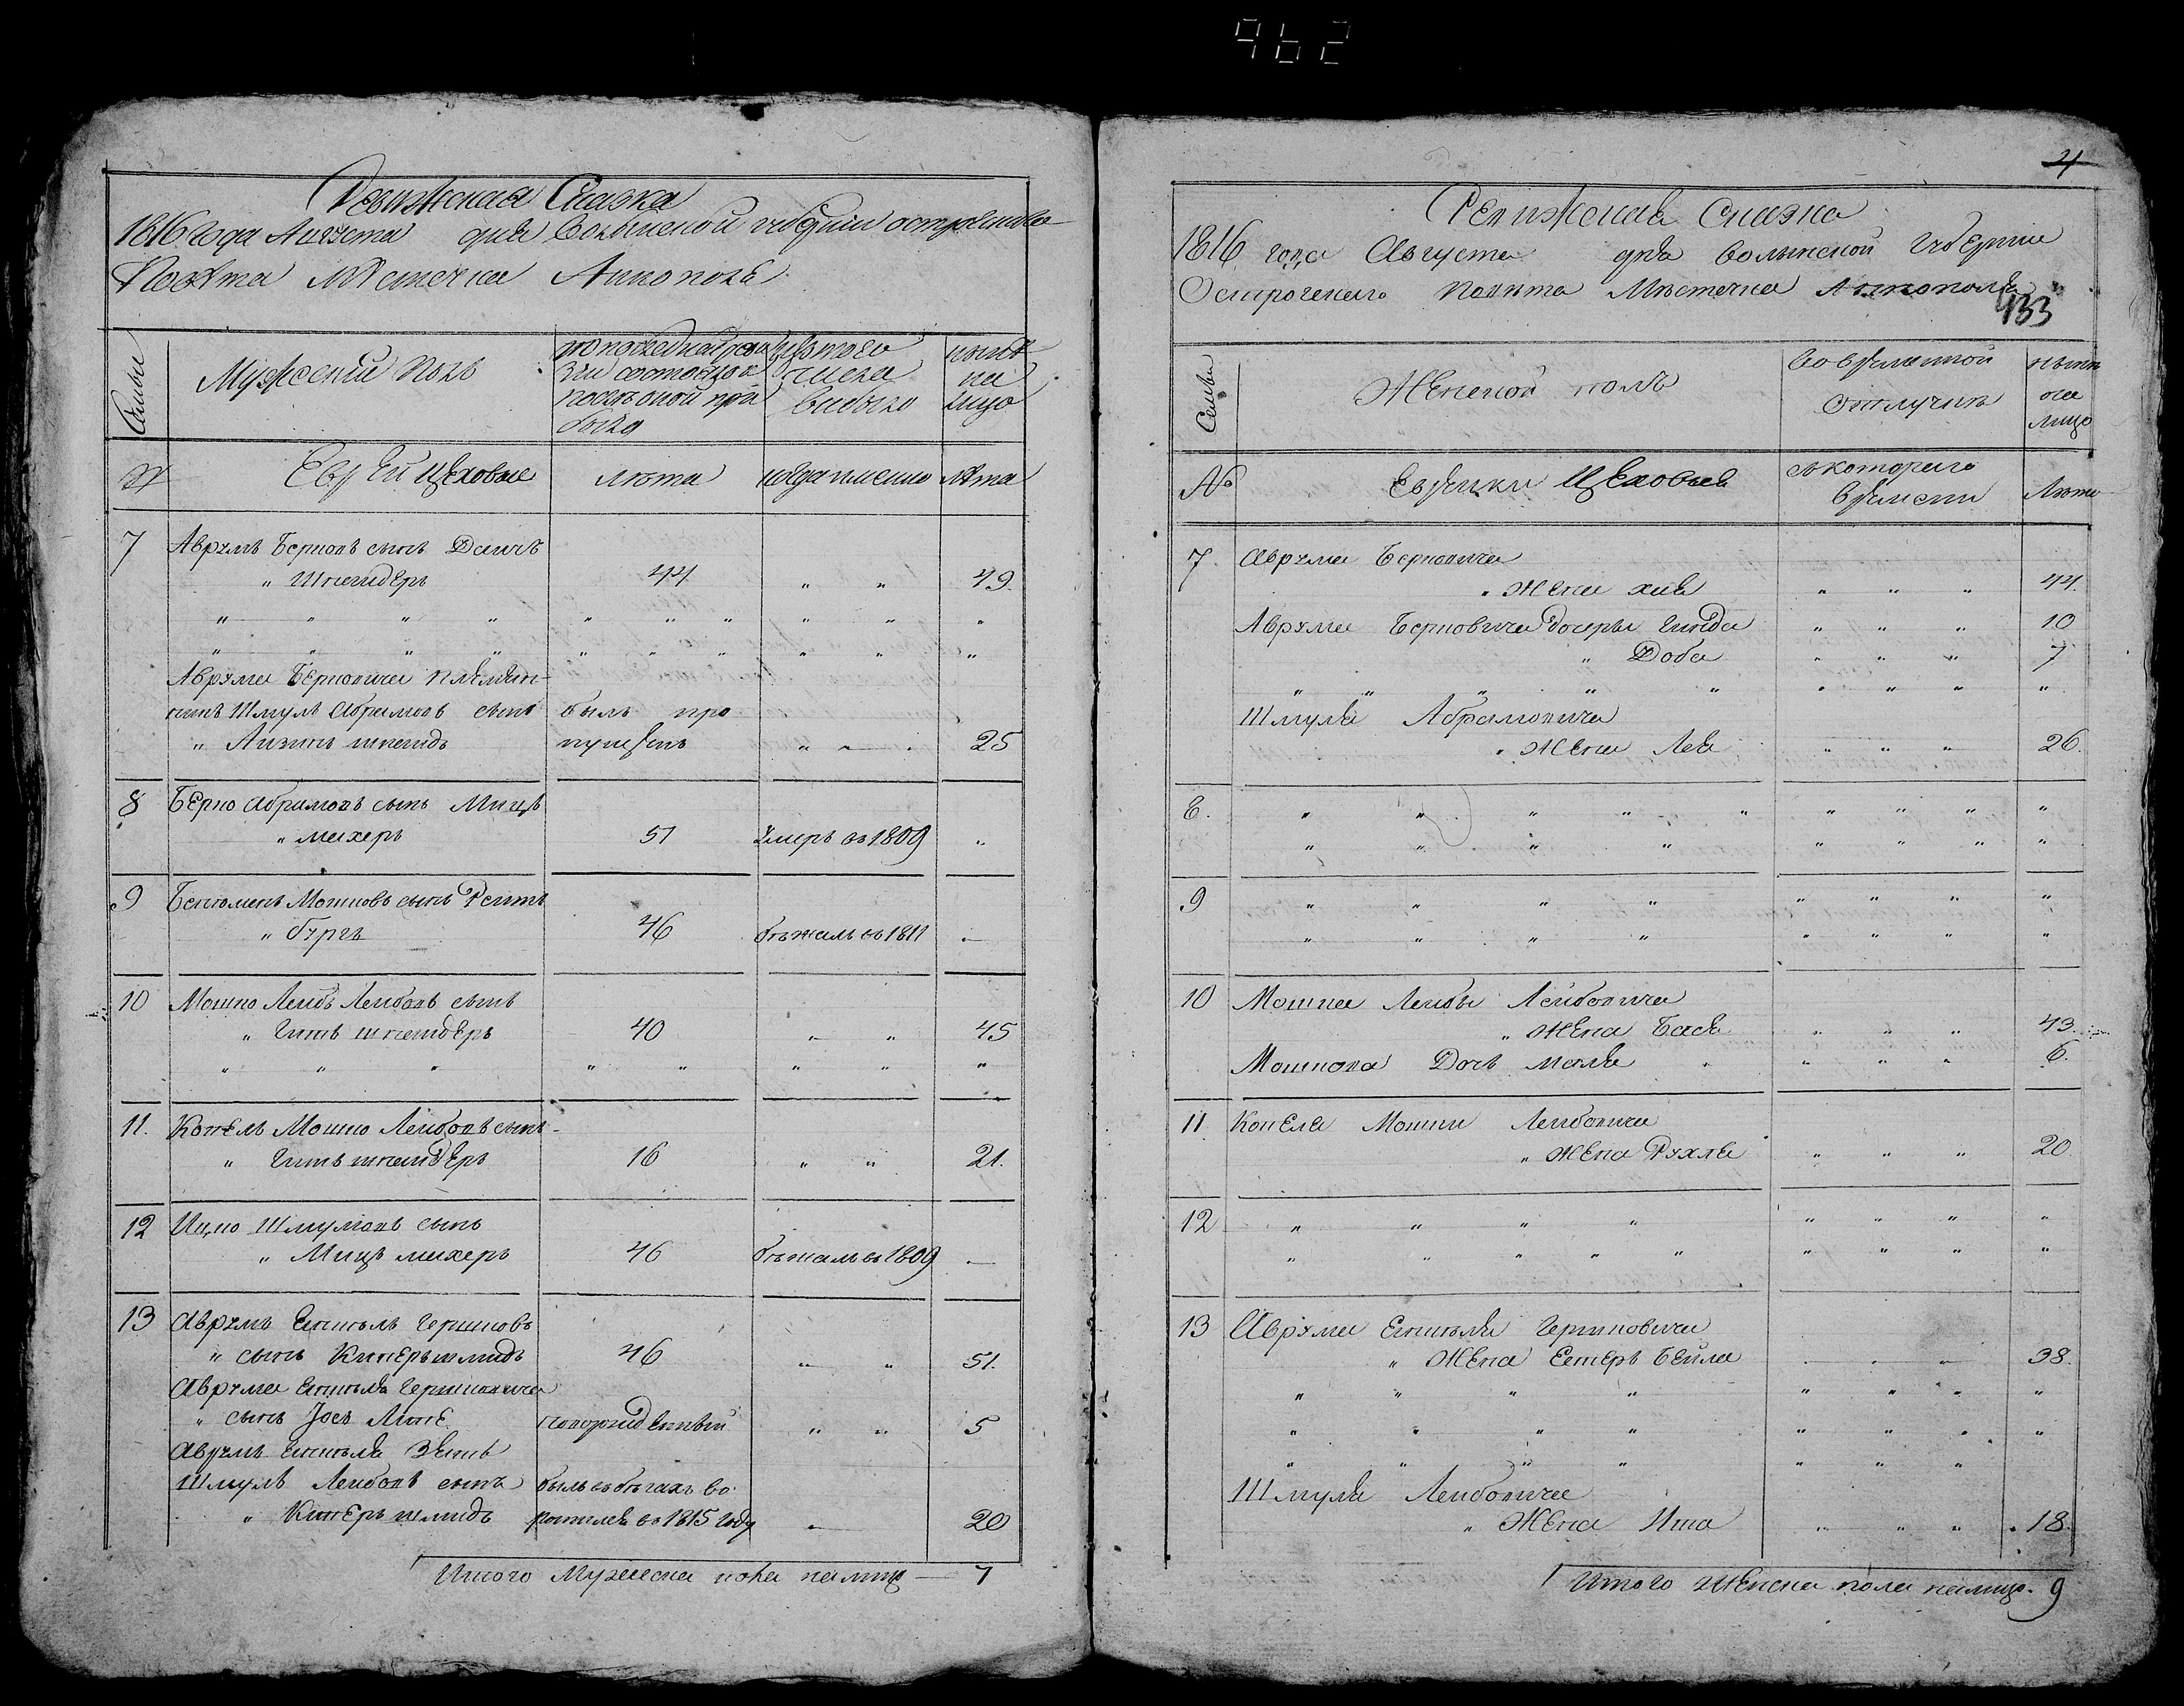 962
Ревижская Сказка
1816 года Августа дня Волынской губернии острожского
Повѣта мѣстечка Аннополь
Семьи
Мужеский полъ
по последней реви
зии состояло и
послѣ оной при
было
изъ того
числа
выбыло
нынѣ
на
лицо
№
Евреи цеховые
лѣта
когда именно
лѣта
7 Аврумъ Берковъ сынъ
" Шнейдеръ 44 " " 49.
" " " " " " " " " "
" " " " " " " " " "
Аврума Берковича племян-
никъ Шмуль Абрамовъ сынъ былъ про
" пущенъ " " " 25
8 Берко Абрамовъ сынъ Мицъ
" махеръ 51 умеръ въ 1809 "
9 Мошковъ сынъ
" бургъ 46 бѣжалъ въ 1811 —
10 Мошко Лейбъ Лейбовъ сынъ
" шнейдеръ 40 " " 45
" " " " " " " "
11. Мошко Лейбовъ сынъ
" шнейдеръ 16 " " 21.
12 Ицко Шмулювъ сынъ
" Мицъ махеръ 46 бѣжалъ въ 1809 —
13 Аврумъ Гершковъ
" сынъ Киперъ шмидъ 46 " " 51.
Аврума Гершковича
" сынъ Іосъ новорожденный " " 5
Аврумъ зять
Шмуль Лейбовъ сынъ былъ въ бѣгахъ во-
" Киперъ шмидъ ротился въ 1815 году " 20
Итого Мужеска пола налицо — 7
4
Ревижская сказка
1816 года Августа дня Волынской Губернии
Острожского Повѣта Мѣстечка Аннополя
133
Семьи
Женской полъ
во временной
отлучкѣ
нынѣ
на
лицо
№
Еврейки Цеховые
съ котораго
времени
Лѣта
7. Аврума Берковича
" Жена Хая " " " 44.
Аврума Берковича дочери " " " 10
" Доба " " " 7
" " " " " " " " "
Шмуля Абрамовича
" Жена Лея " " " 26.
8. " " " " " " " " "
" " " " " " " "
9 " " " " " " " "
" " " " " " " "
10 Мошка Лейбы Лейбовича
" Жена Бася " " " 43.
Мошкова Дочь Маля " " " 6.
11 Мошки Лейбовича
" Жена Рухля " " " 20
12 " " " " " " " "
" " " " " " " " "
13 Аврума Гершковича
" Жена Естеръ Бейла — " " 38.
" " " " " " " "
" " " " " " " "
" " " " " " "
Шмуля Лейбовича
" Жена " " " 18.
Итого женска пола налицо. 9